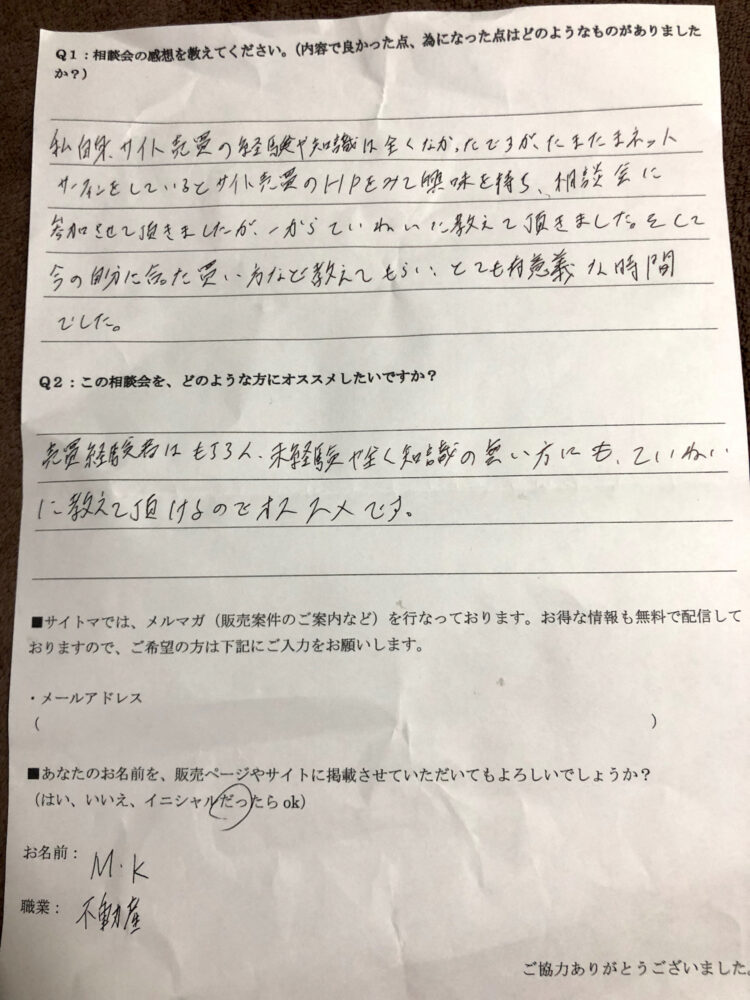 Q1：相談会の感想を教えてください。(内容で良かった点、為になった点はどのようなものがありました
か？)
私自身、サイト売買の経験や知識は全くなかったですが、たまたまネット
サーフィンをしているとサイト売買のHPをみて興味を持ち、相談会に
参加させて頂きましたが、一からていねいに教えて頂きました。そして
今の自分に合った買い方など教えてもらい、とても有意義な時間
でした。
Q2：この相談会を、どのような方にオススメしたいですか？
売買経験者はもちろん、未経験や全く知識の無い方にも、ていねい
に教えて頂けるのでオススメです。
■サイトマでは、メルマガ（販売案件のご案内など）を行なっております。お得な情報も無料で配信して
おりますので、ご希望の方は下記にご入力をお願いします。
・メールアドレス
（　　　　　　　　　　）
■あなたのお名前を、販売ページやサイトに掲載させていただいてもよろしいでしょうか？
（はい、いいえ、イニシャルだったら ok）
お名前： M・K
職業： 不動産
ご協力ありがとうございました。